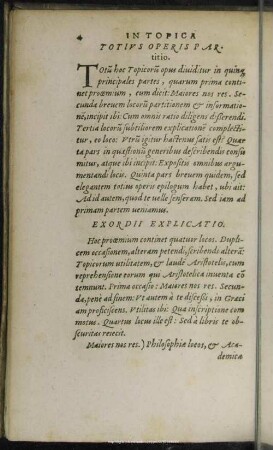 4 IN TOPICA
TOTIVS OPERIS PAR-
titio.
Totũ hoc Topicorũ opus diuiditur in quinq;
principales partes, quarum prima conti-
net proœmium, cum dicit: Maiores nos res. Se-
cunda breuem locorũ partitionem & informatio-
nẽ, incipit ibi: Cum omnis ratio diligens disserendi.
Tertia locorũ subtiliorem explicationẽ complecti-
tur, eo loco: Vtrũ igitur hactenus satis est? Quar-
ta pars in quæstionũ generibus describendis consu-
mitur, atque ibi incipit: Expositis omnibus argu-
mentandi locis. Quinta pars breuem quidem, sed
elegantem totius operis epilogum habet, ubi ait:
Ad id autem, quod te uelle senseram. Sed iam ad
primam partem ueniamus.
EXORDII EXPLICATIO.
Hoc proœmium continet quatuor locos. Dupli-
cem occasionem, alteram petendi, scribendi alterã:
Topicorum utilitatem, & laudẽ Aristotelis, cum
reprehensione eorum qui Aristotelica inuenta cõ
temnunt. Prima occasio: Maiores nos res. Secun-
da, penè ad finem: Vt autem à te discessi, in Græci
am proficiscens. Vtilitas ibi: Qua inscriptione com
motus. Quartus locus ille est: Sed à libris te ob-
scuritas reiecit.
Maiores nos res.) Philosophiæ locos, & Aca-
demicæ